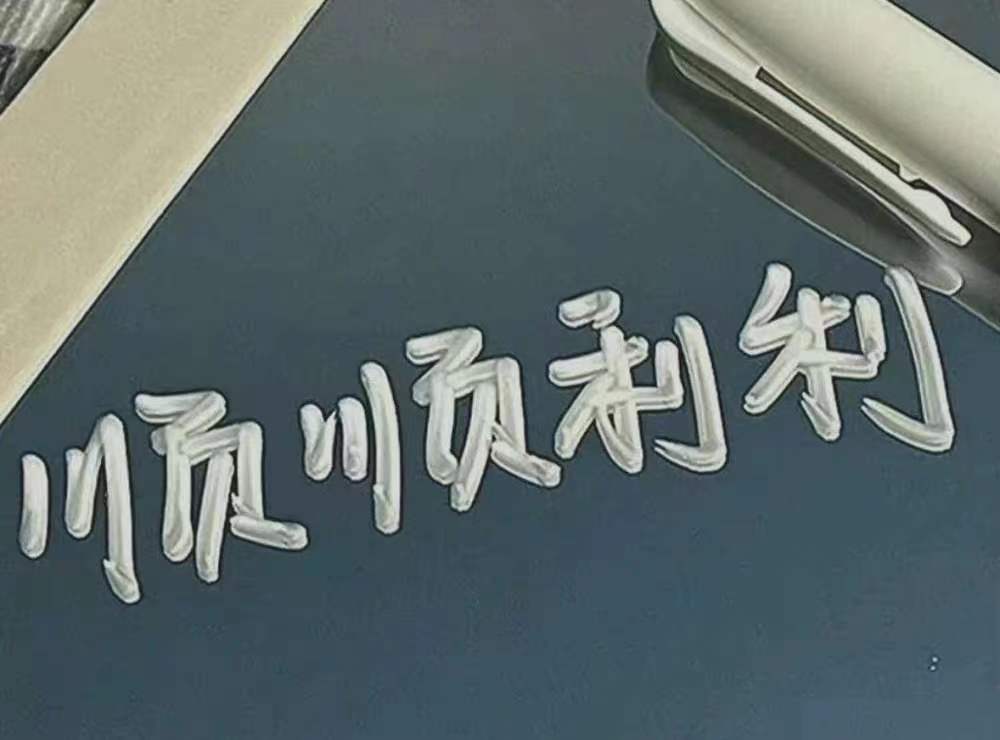 顺顺利利